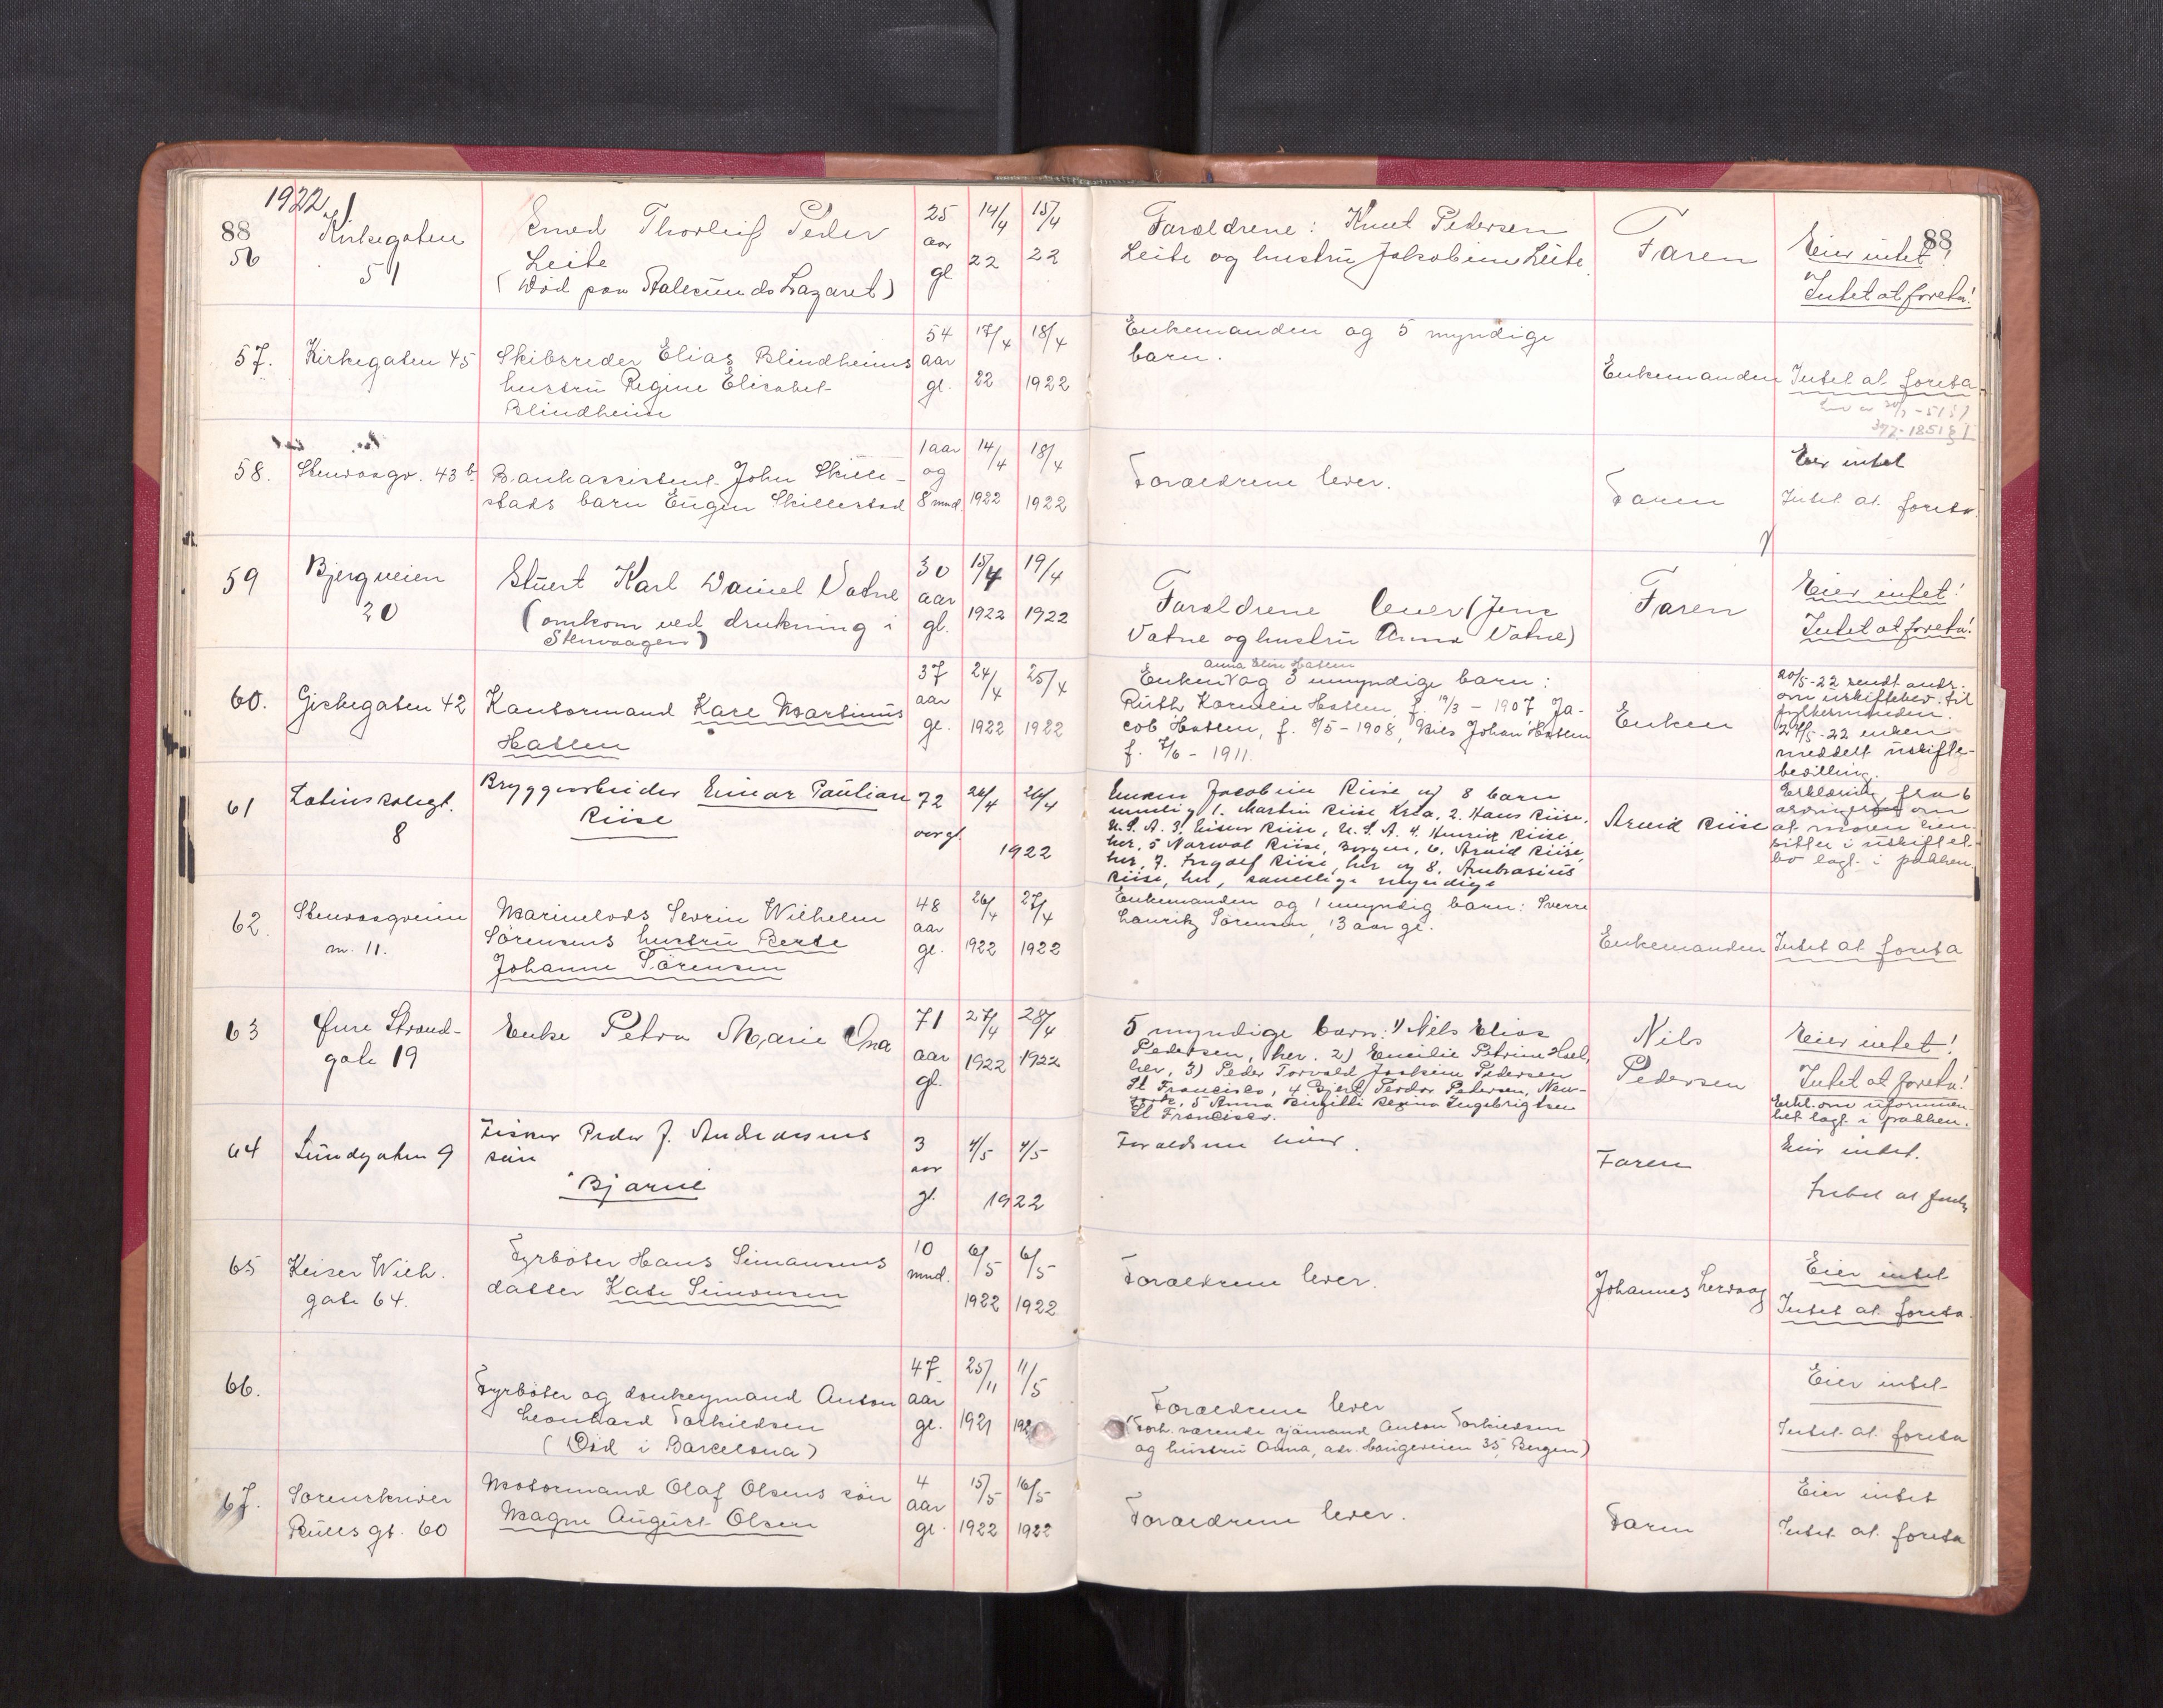 1922.
88
88
56
Kirkegaten
51
Smed Thorleif Peder
Leite
(Död paa Aalesunds Lazaret)
25
aar
gl
14/4
22
15/4
22
Foraldrene: Knut Pedersen
Leite og hustru Jakobine Leite.
Faren
Eier intet!
Intet at foreta!
57.
Kirkegaten 45
Skibsreder Elias Blindheims
hustru Regine Elisabet
Blindheim
54
aar
gl.
17/4
22
18/4
1922
Enkemanden og 5 myndige
barn.
Enkemanden
Intet at foreta
58.
Stenvaagv. 43 b.
Bankassistent John Skille-
stads barn Eugen Skillestad
1 aar
og
8 mnd.
14/4
1922
18/4
1922
Foraeldrene lever.
Faren
Eier intet
Intet at foreta.
59
Bjergveien
20
Stuert Karl Daniel Vatne
(omkom ved drukning i
Stenvaagen)
30
aar
gl.
15/4
1922
19/4
1922
Foraldrene lever (Jens
Vatne og hustru Anna Vatne)
Faren
Eier intet!
Intet at foreta!
60.
Giskegaten 42
Kontormand Kare Martinus
Hatlen
37
aar
gl.
24/4
1922
25/4
1922
Anna Elise Hatlen
Enken og 3 umyndige barn:
Ruth Kornelie Hatlen, f. 19/3 - 1907, Ja-
cob Hatlen, f. 9/5 - 1908, Nils Johan Hatlen
f. 7/6 - 1911.
Enken
20/5-22 sendt andr.
om uskiftebev. til
fylkesmanden.
24/5-22 enken
meddelt uskifte-
bevilling.
61
Latinskolegt.
8
Bryggearbeider Einar Paulian
Riise
72
aar gl.
26/4
26/4
1922
Enken Jacobine Riise og 8 barn
nemlig 1. Martin Riise Kr.a, 2. Hans Riise,
U.S.A. 3. Einar Riise, U.S.A. 4. Henrik Riise
her, 5 Narval Riise, Bergen, 6. Arvid Riise
her, 7. Ingolf Riise, her og 8. Ambrosius
Riise, her, samtlige myndige
Arvid Riise
Erklæring fra 6
arvinger om
at moren hen-
sitter i uskiftet
bo lagt i pakken.
62.
Stenvaagveien
m. 11.
Marinelods Sevrin Wilhelm
Sörensens hustru Berte
Johanne Sörensen
48
aar
gl.
26/4
1922
27/4
1922
Enkemanden og 1 umyndig barn: Sverre
Lauritz Sörensen, 13 aar gl.
Enkemanden
Intet at foreta
63
Øvre Strand-
gate 19
Enke Petra Marie Ona
71
aar
gl.
27/4
1922
28/4
1922
5 myndige barn: 1) Nils Elias
Pedersen, her. 2) Emilie Petrine
her, 3) Peder Torvald Joakim Pedersen
St Francisko, 4 Bjert Peder Pedersen, New-
york, 5 Anna Birgitte Regina Ingebrigtsen
St Francisco.
Nils
Pedersen
Eier intet!
Intet at foreta!
Erkl. om uformuen-
het lagt i pakken.
64
Lundgaten 9
Fisker Peder J. Andreasens
sön
Bjarne
3
aar
gl.
4/5
4/5
1922
Foraldrene lever.
Faren
Eier intet.
Intet at foreta
65
Keiser Wilh.
gate 64.
Fyrböter Hans Simonsens
datter Kate Simonsen
10
mnd.
6/5
1922
6/5
1922
Foraeldrene lever.
Johannes Lervaag
Eier intet
Intet at foreta.
66.
Fyrböter og donkeymand Anton
Leonhard Torkildsen
(Död i Barcelona)
47
aar
gl.
25/11
1921
11/5
192
Foraeldrene lever
(Forh. værende sjömand Anton Torkildsen
og hustru Anna, adr. Laugeveien 35, Bergen)
Eier intet
Intet at foreta
67.
Sorenskriver
Bulls gt. 60
Motormand Olaf Olsens sön
Magne August Olsen
4
aar
gl.
15/5
1922
16/5
1922
Foraeldrene lever.
Faren
Eier intet
Intet at foreta